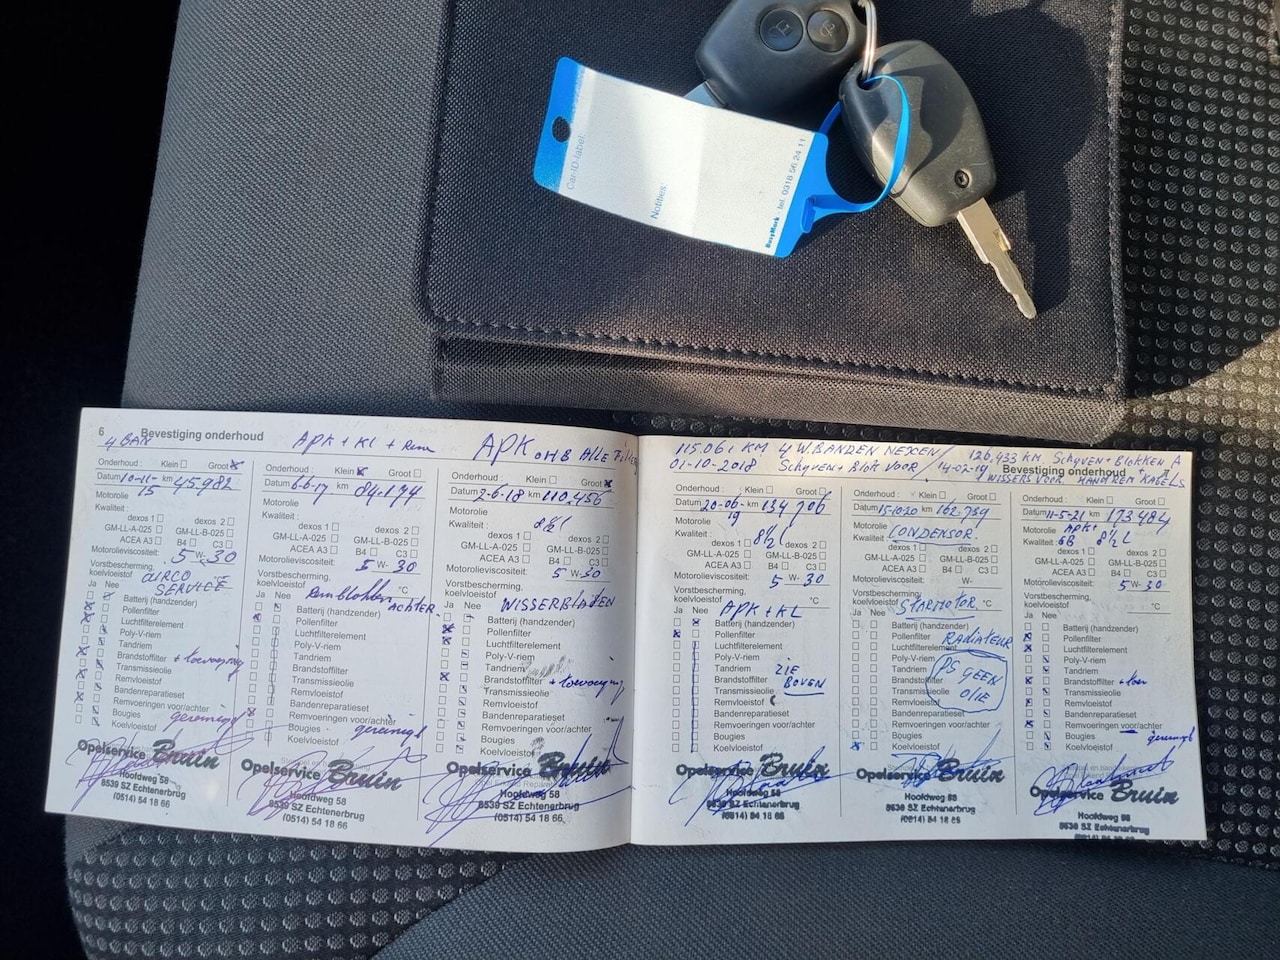 Car-ID-label:
Notities:
BusyMark tel. 0318 56 24 11
6 Bevestiging onderhoud
4 BAN
Onderhoud : Klein Groot
Datum 10-11-15 km 45.982
Motorolie
Kwaliteit :
dexos 1 dexos 2
GM-LL-A-025 GM-LL-B-025
ACEA A3 B4 C3
Motorolieviscositeit: 5 W- 30
Vorstbescherming,
koelvloeistof
AIRCO
SERVICE
Ja Nee
Batterij (handzender)
Pollenfilter
Luchtfilterelement
Poly-V-riem
Tandriem
Brandstoffilter + toevoeging
Transmissieolie
Remvloeistof
Bandenreparatieset
Remvoeringen voor/achter
Bougies gereinigd
Koelvloeistof
Opelservice Bruin
Hoofdweg 58
8539 SZ Echtenerbrug
(0514) 54 18 66
APK + KL + Rem
Onderhoud : Klein Groot
Datum 6-6-17 km 84.174
Motorolie
Kwaliteit :
dexos 1 dexos 2
GM-LL-A-025 GM-LL-B-025
ACEA A3 B4 C3
Motorolieviscositeit: 5 W- 30
Vorstbescherming,
koelvloeistof °C
Remblokken
ACHTER
Ja Nee
Batterij (handzender)
Pollenfilter
Luchtfilterelement
Poly-V-riem
Tandriem
Brandstoffilter
Transmissieolie
Remvloeistof
Bandenreparatieset
Remvoeringen voor/achter
Bougies gereinigd
Koelvloeistof
Opelservice Bruin
Hoofdweg 58
8539 SZ Echtenerbrug
(0514) 54 18 66
APK OHB Alle
Onderhoud : Klein Groot
Datum 2-6-18 km 110,456
Motorolie
Kwaliteit : 8½ l
dexos 1 dexos 2
GM-LL-A-025 GM-LL-B-025
ACEA A3 B4 C3
Motorolieviscositeit: 5 W- 30
Vorstbescherming,
koelvloeistof °C
Ja Nee WISSERBLADEN
Batterij (handzender)
Pollenfilter
Luchtfilterelement
Poly-V-riem
Tandriem
Brandstoffilter + toevoeging
Transmissieolie
Remvloeistof
Bandenreparatieset
Remvoeringen voor/achter
Bougies
Koelvloeistof
Opelservice Bruin
Hoofdweg 58
8539 SZ Echtenerbrug
(0514) 54 18 66
115.061 KM 4 W.BANDEN NEXEN
01-10-2018 Schyven + Blok VOOR
126,433 KM Schyven + Blokken A
14-02-19 Bevestiging onderhoud
WISSERS VOOR HANDREM KABELS
Onderhoud : Klein Groot
Datum 20-06-19 km 134 706
Motorolie
Kwaliteit : 8½ l
dexos 1 dexos 2
GM-LL-A-025 GM-LL-B-025
ACEA A3 B4 C3
Motorolieviscositeit: 5 W- 30
Vorstbescherming,
koelvloeistof °C
Ja Nee APK + KL
Batterij (handzender)
Pollenfilter
Luchtfilterelement
Poly-V-riem
Tandriem ZIE
Brandstoffilter BOVEN
Transmissieolie
Remvloeistof
Bandenreparatieset
Remvoeringen voor/achter
Bougies
Koelvloeistof
Opelservice Bruin
Hoofdweg 58
8539 SZ Echtenerbrug
(0514) 54 18 66
Onderhoud : Klein Groot
Datum 15-10-20 km 162,759
Motorolie
Kwaliteit : CONDENSOR
dexos 1 dexos 2
GM-LL-A-025 GM-LL-B-025
ACEA A3 B4 C3
Motorolieviscositeit: W-
Vorstbescherming,
koelvloeistof °C
Ja Nee STARTMOTOR
Batterij (handzender)
Pollenfilter RADIATEUR
Luchtfilterelement
Poly-V-riem
Tandriem PS GEEN
Brandstoffilter OLIE
Transmissieolie
Remvloeistof
Bandenreparatieset
Remvoeringen voor/achter
Bougies
Koelvloeistof
Opelservice Bruin
Hoofdweg 58
8539 SZ Echtenerbrug
(0514) 54 18 66
Onderhoud : Klein Groot
Datum 11-5-21 km 173 484
Motorolie APK+
Kwaliteit : GB 8½ L
dexos 1 dexos 2
GM-LL-A-025 GM-LL-B-025
ACEA A3 B4 C3
Motorolieviscositeit: 5 W- 30
Vorstbescherming,
koelvloeistof °C
Ja Nee
Batterij (handzender)
Pollenfilter
Luchtfilterelement
Poly-V-riem
Tandriem
Brandstoffilter
Transmissieolie
Remvloeistof
Bandenreparatieset
Remvoeringen voor/achter
Bougies gereinigd
Koelvloeistof
Opelservice Bruin
Hoofdweg 58
8539 SZ Echtenerbrug
(0514) 54 18 66